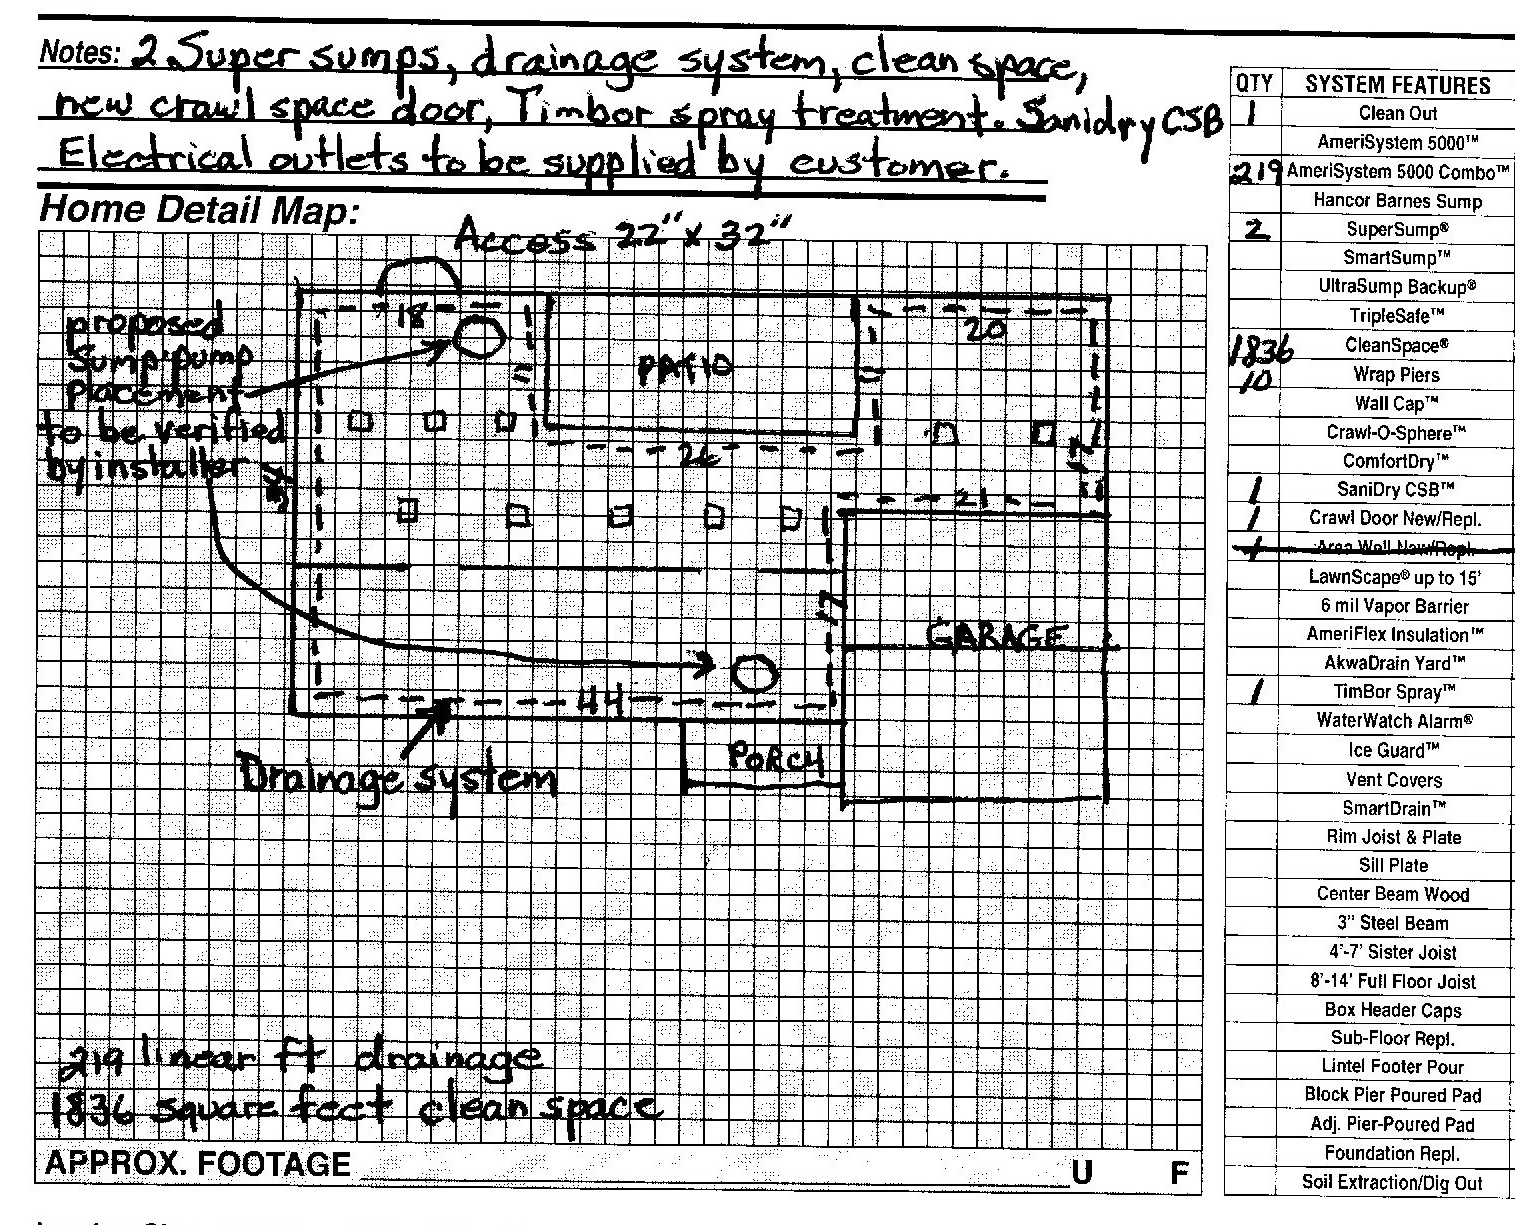 Notes: 2 Super sumps, drainage system, clean space,
new crawl space door, Timbor spray treatment. Sanidry CSB
Electrical outlets to be supplied by customer.
Home Detail Map:
Access 22" x 32"
proposed
sump pump
placement
to be verified
by installer
18
PATIO
20
11
11
26
17
34
21
17
GARAGE
44
PORCH
Drainage system
219 linear ft drainage
1836 square feet clean space
APPROX. FOOTAGE U F
QTY SYSTEM FEATURES
1 Clean Out
AmeriSystem 5000™
219 AmeriSystem 5000 Combo™
Hancor Barnes Sump
2 SuperSump®
SmartSump™
UltraSump Backup®
TripleSafe™
1836 CleanSpace®
10 Wrap Piers
Wall Cap™
Crawl-O-Sphere™
ComfortDry™
1 SaniDry CSB™
1 Crawl Door New/Repl.
1 Area Well New/Repl.
LawnScape® up to 15'
6 mil Vapor Barrier
AmeriFlex Insulation™
AkwaDrain Yard™
1 TimBor Spray™
WaterWatch Alarm®
Ice Guard™
Vent Covers
SmartDrain™
Rim Joist & Plate
Sill Plate
Center Beam Wood
3" Steel Beam
4'-7' Sister Joist
8'-14' Full Floor Joist
Box Header Caps
Sub-Floor Repl.
Lintel Footer Pour
Block Pier Poured Pad
Adj. Pier-Poured Pad
Foundation Repl.
Soil Extraction/Dig Out